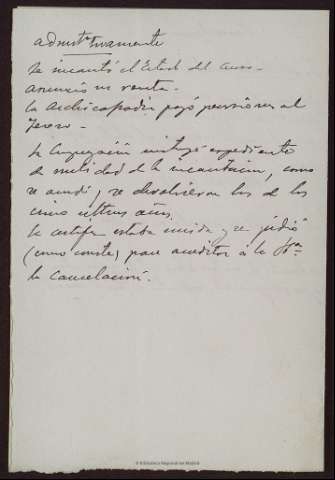 administrativamente
Se incautó el Estado del censo.
Anuncio en venta.
La Archicofradía pagó pensiones al
Tesoro.
La Congregación instruyó expediente
de nulidad de la incautación, como
se anuló, y se devolvieron los de los
cinco últimos años.
La certifon estaba unida y se pidió
(como consta) para acreditar a la
la cancelación.
© Biblioteca Regional de Madrid